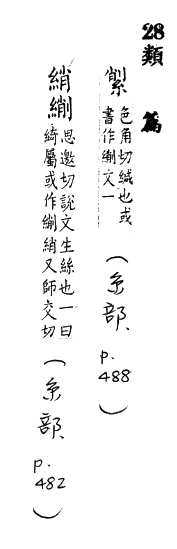 28類
篇
䋝 色角切緘也或
書作𦃗文一
(糸部 p. 488)
綃𦃗 思邀切說文生絲也一曰
綺屬或作𦃗綃又師交切
(糸部 p. 482)